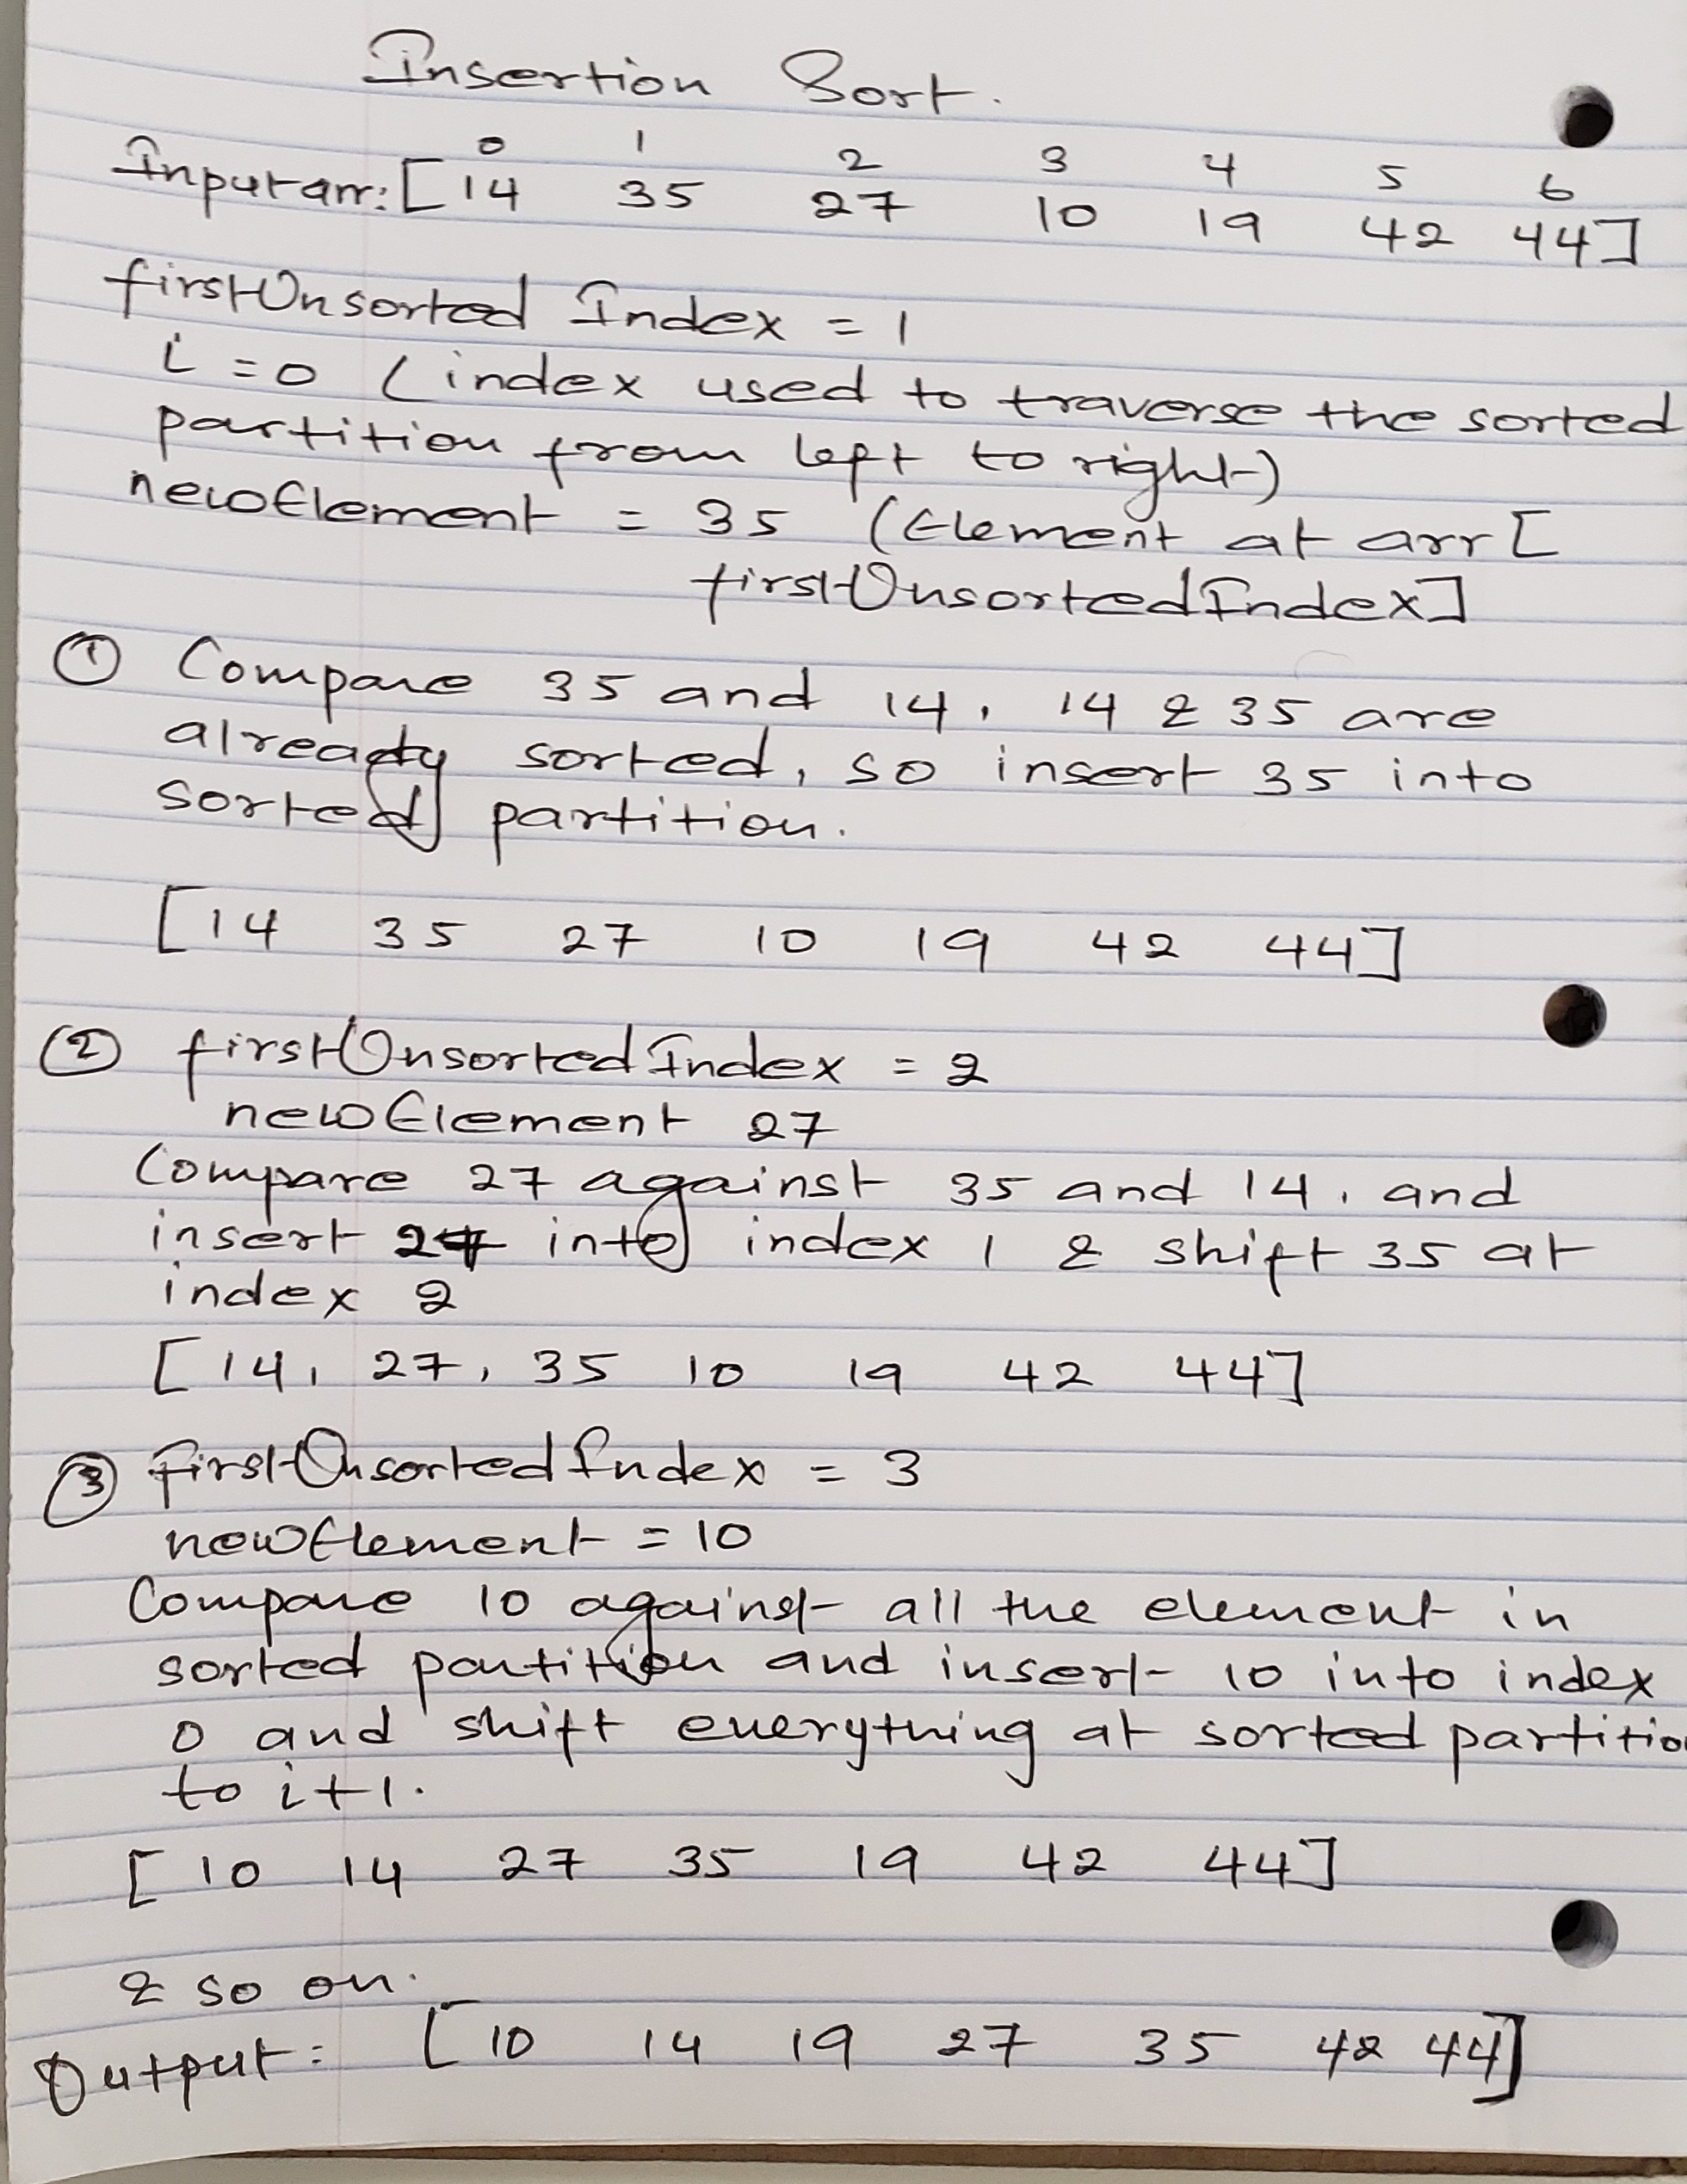 Insertion Sort.
0 1 2 3 4 5 6
Input arr: [14 35 27 10 19 42 44]
firstUnsorted Index = 1
i = 0 (index used to traverse the sorted
partition from left to right)
newElement = 35 (Element at arr[
firstUnsortedIndex]
① Compare 35 and 14, 14 & 35 are
already sorted, so insert 35 into
sorted partition.
[14 35 27 10 19 42 44]
② firstUnsortedIndex = 2
newElement 27
Compare 27 against 35 and 14, and
insert 27 into index 1 & shift 35 at
index 2
[14, 27, 35 10 19 42 44]
③ firstUnsortedIndex = 3
newElement = 10
Compare 10 against all the element in
sorted partition and insert 10 into index
0 and shift everything at sorted partitio
to i+1.
[10 14 27 35 19 42 44]
& so on.
Output: [10 14 19 27 35 42 44]